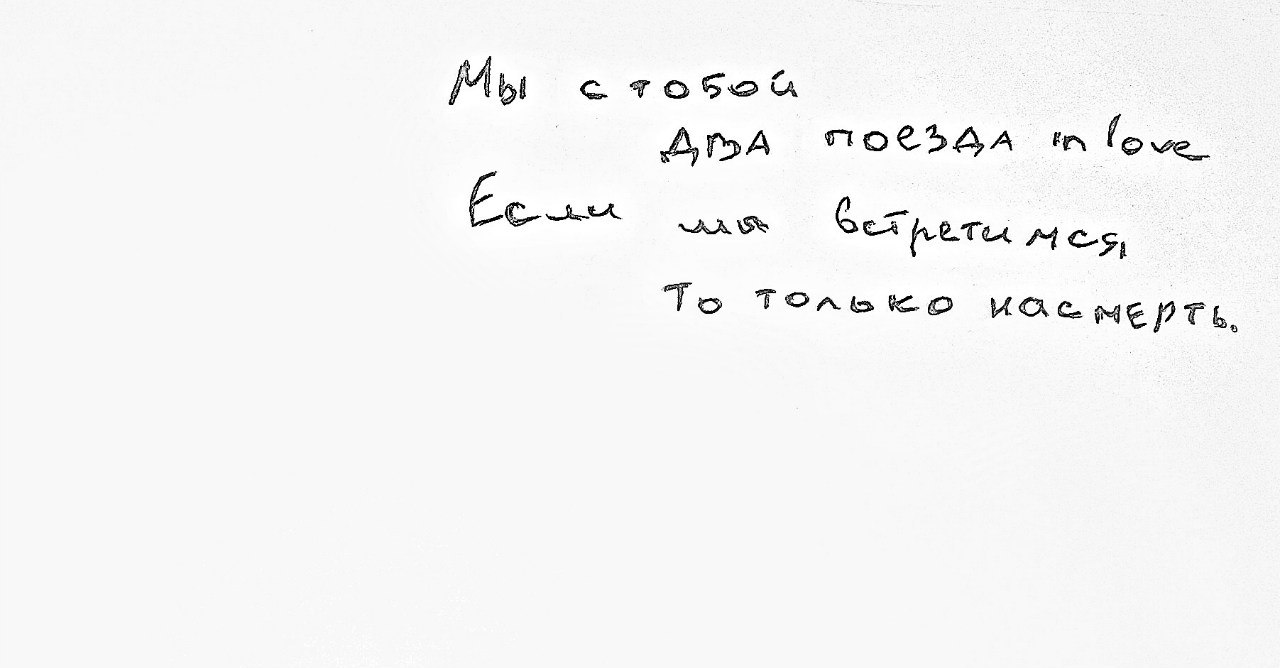 Мы с тобой
два поезда in love
Если мы встретимся,
То только насмерть.